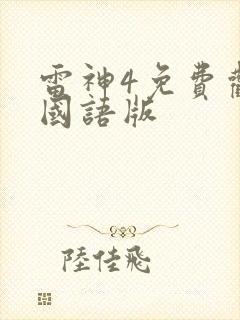 雷神4免費
國語版
陸佳飛